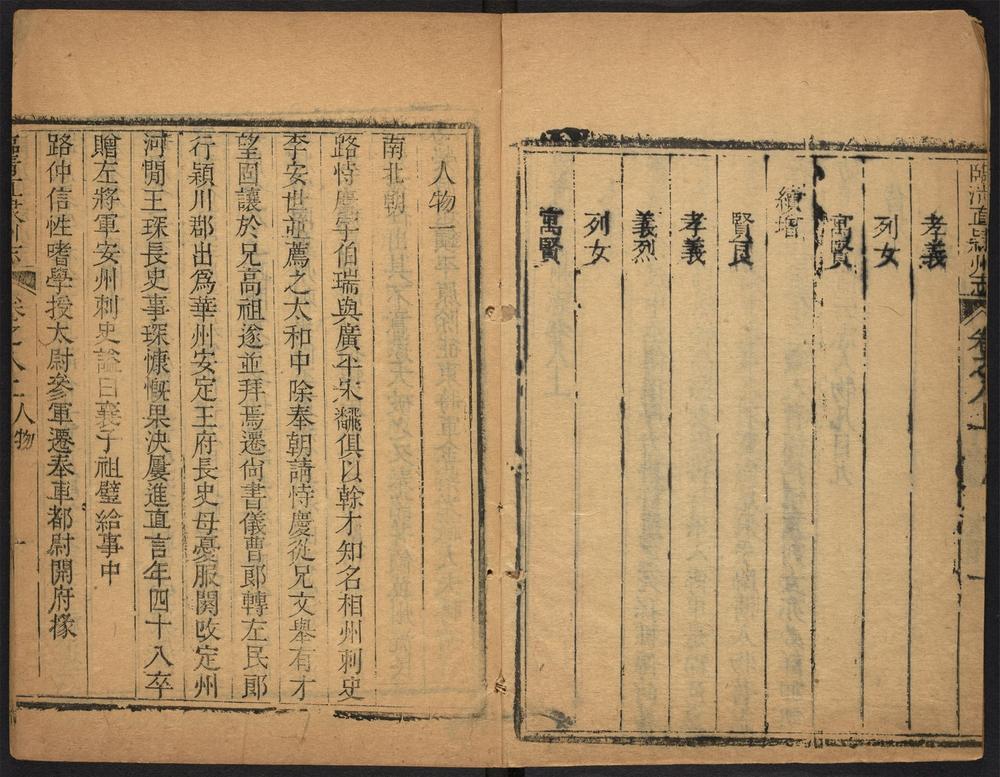 臨清直隸州志
卷之八上
一
孝義
列女
寓賢
續增
賢良
孝義
義烈
列女
寓賢
人物一
南北朝
路恃慶字伯瑞與廣平宋翻俱以幹才知名相州刺史
李安世並薦之太和中除奉朝請恃慶從兄文舉有才
望固讓於兄高祖遂並拜焉遷尙書儀曹郞轉左民郞
行潁川郡出爲華州安定王府長史母憂服闋改定州
河間王琛長史事琛慷慨果決屢進直言年四十八卒
贈左將軍安州刺史謚曰襄子祖璧給事中
路仲信性嗜學授太尉參軍遷奉車都尉開府掾
卷之八上人物
一